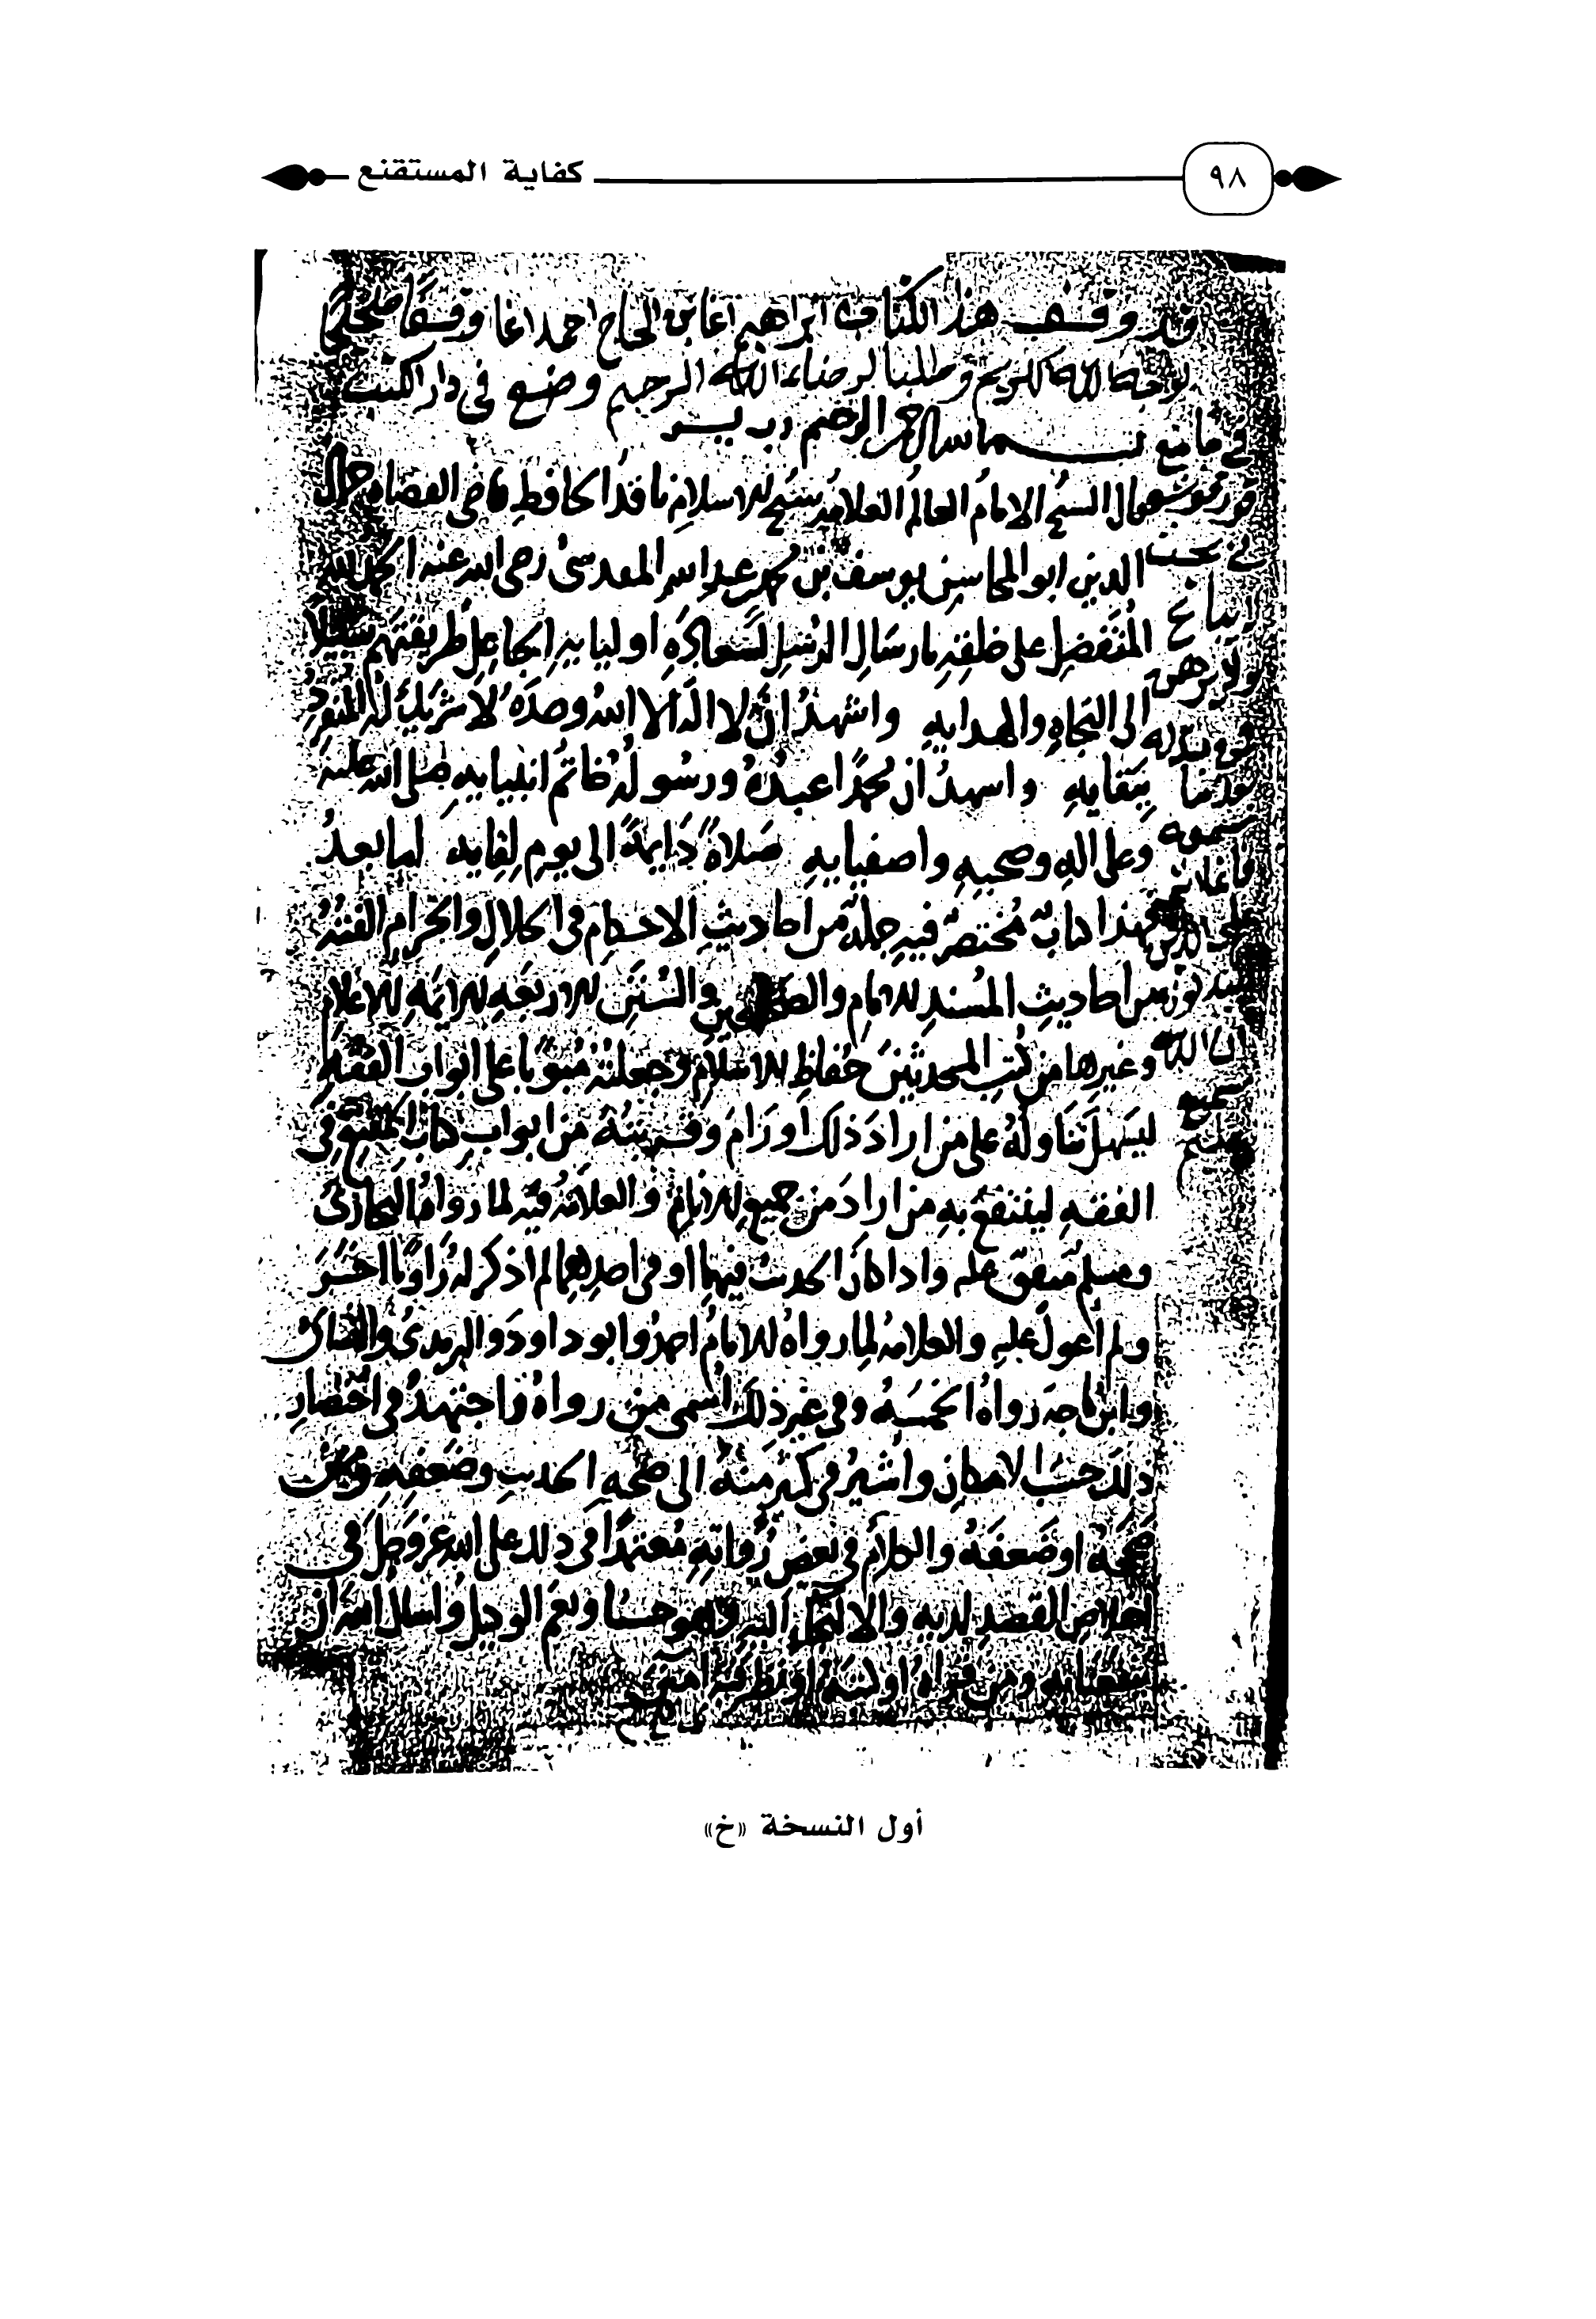 ٩٨
كفاية المستقنع
قد وقف هذا الكتاب ابراهيم اغا بن الحاج احمد اغا وقفا صحيحا
لوجه الله الكريم وطلبا لرضاء الله الرحيم وضع في دار الكتب
بسم الله الرحمن الرحيم رب يسر
قال الشيخ الامام العالم العلامة شيخ الاسلام ناقد الحافظ قاضي القضاة جمال
الدين ابو المحاسن يوسف بن محمد بن عبد الله المقدسي رضي الله عنه الحمد لله
المتفضل على خلقه بارسال الرسل لسعادة اوليايه الجاعل طريقتهم سبيلا
الى النجاة والهدايه واشهد ان لا اله الا الله وحده لا شريك له المنفرد
ببقايه واشهد ان محمدا عبده ورسوله خاتم انبيايه صلى الله عليه
وعلى اله وصحبه واصفيايه صلاة دايمة الى يوم لقايه اما بعد
فهذا كتاب مختصر فيه جملة من احاديث الاحكام في الحلال والحرام الفته
من احاديث المسند للامام والصحيحين والسنن الاربعه للايمه الاعلام
وغيرها من كتب المحدثين حفاظ الاسلام وجعلته مبوبا على ابواب الفقه
ليسهل تناوله على من اراد ذلك او رام وقربته من ابواب كتاب المقنع في
الفقه لينتفع به من اراد من جميع الانام والعلامة فيه لما رواه البخاري
ومسلم متفق عليه واذا كان الحديث فيهما او في احدهما لم اذكر له راويا اخر
ولم اعول عليه والعلامة لما رواه الامام احمد وابو داود والترمذي والنسائي
وابن ماجه رواه الخمسة وفي غير ذلك اسمي من رواه واجتهد في اختصار
ذلك حسب الامكان واشير في كثير منه الى صحة الحديث وضعفه ومن
صححه او ضعفه والكلام في بعض رواته معتمدا في ذلك على الله عز وجل في
اخلاص القصد لديه والاتكال عليه وهو حسبنا ونعم الوكيل واسال الله ان
ومن قراه او كتبه او نظر فيه امين
في جامع
اول النسخة «خ»